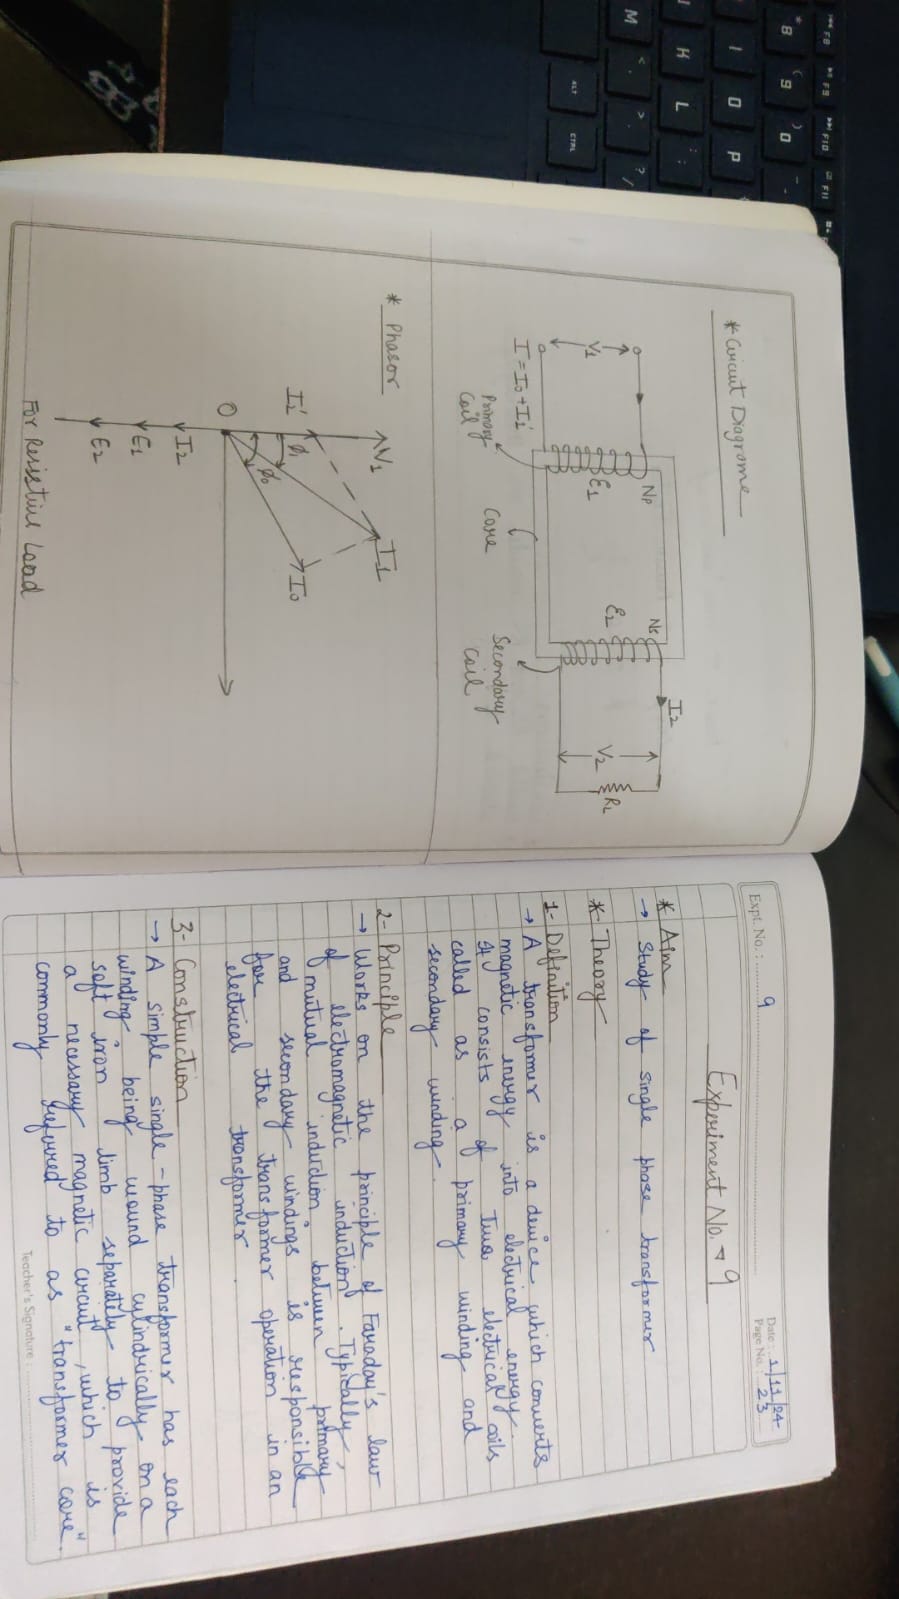 * Circuit Diagrame
V1
I = I0 + I2'
Primary
Coil
Np
E1
Core
Ns
E2
Secondary
Coil
I2
V2
RL
* Phasor
V1
I1
I2'
I0
φ1
φ0
O
I2
E1
E2
For Resistive Load
Expt. No. : 9
Date : 1/11/24
Page No. : 23
Experiment No. → 9
* Aim
→ Study of single phase transformer
* Theory
1- Definition
→ A transformer is a device which converts
magnetic energy into electrical energy.
It consists of two electrical coils
called as a primary winding and
secondary winding.
2- Principle
→ Works on the principle of Faraday's law
of electromagnetic induction. Typically,
mutual induction between primary
and secondary windings is responsible
for the transformer operation in an
electrical transformer.
3- Construction
→ A simple single-phase transformer has each
winding being wound cylindrically on a
soft iron limb separately to provide
a necessary magnetic circuit, which is
commonly referred to as "transformer core".
Teacher's Signature :
F8
F9
F10
F11
* 8
( 9
) 0
_ -
I
O
P
K
L
: ;
M
< ,
> .
? /
ALT
CTRL